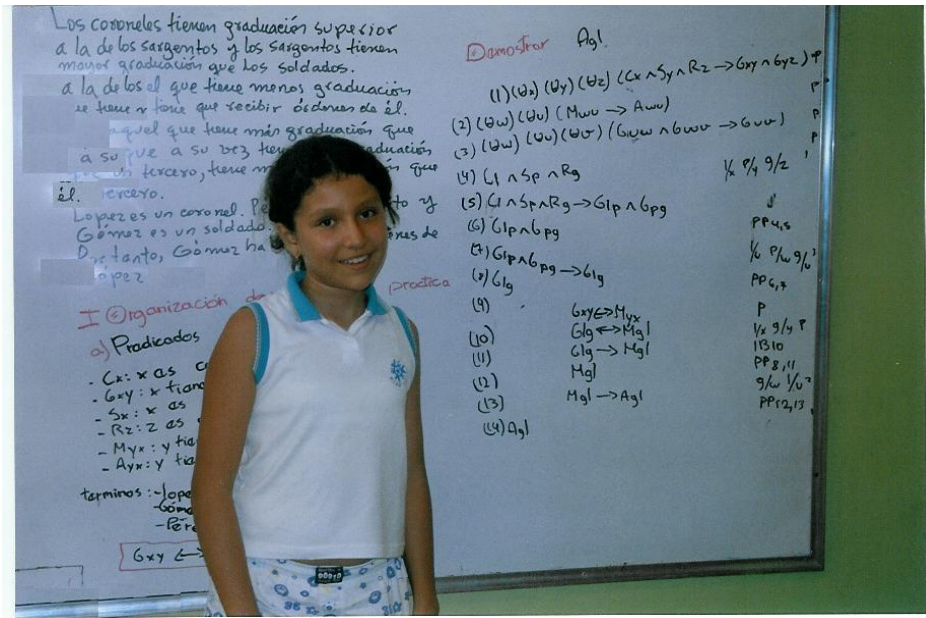 Los coroneles tienen graduación superior
a la de los sargentos y los sargentos tienen
mayor graduación que Los soldados.
a la de los el que tiene menos graduación
tiene que recibir órdenes de él.
aquel que tiene más graduación que
a su que a su vez graduación
tercero, tiene que
él. tercero.
Lopez es un coronel. to y
Gómez es un soldado
tanto, Gómez ha nes de
ópez
I Organización de practica
a) Predicados
- Cx: x es
- Gxy: x tiene
- Sx: x es
- Rz: z es
- Myx: y tie
- Ayx: y tie
terminos: -lope
-Góme
-Pére
Gxy ↔
Demostrar Agl.
(1) (∀x) (∀y) (∀z) (Cx ∧ Sy ∧ Rz → Gxy ∧ Gyz) P
(2) (∀w) (∀u) (Mwu → Awu) P
(3) (∀w) (∀u) (∀v) (Guw ∧ Gwv → Guv) P
(4) Cl ∧ Sp ∧ Rg P
(5) Cl ∧ Sp ∧ Rg → Glp ∧ Gpg l/x p/y g/z 1
(6) Glp ∧ Gpg PP 4,5
(7) Glp ∧ Gpg → Glg l/u p/w g/v 3
(8) Glg PP 6,7
(9) Gxy ↔ Myx P
(10) Glg ↔ Mgl l/x g/y 9
(11) Glg → Mgl 10
(12) Mgl PP 8,11
(13) Mgl → Agl g/w l/u 2
(14) Agl PP 12,13